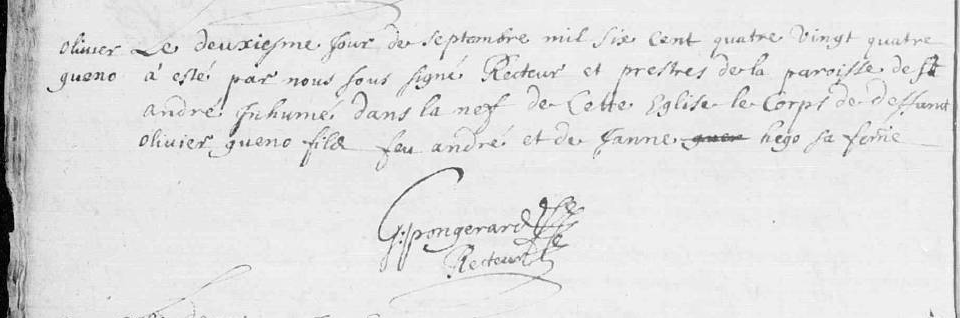 olivier Le deuxiesme Jour de septembre mil six Cent quatre Vingt quatre
gueno á esté par nous sous signé Recteur et prestres de la paroisse de st
andré Inhumé dans la nef de Cette Eglise le Corps de deffunct
olivier gueno fils feu andré et de Janne hego sa feme
G: pongerard
Recteur